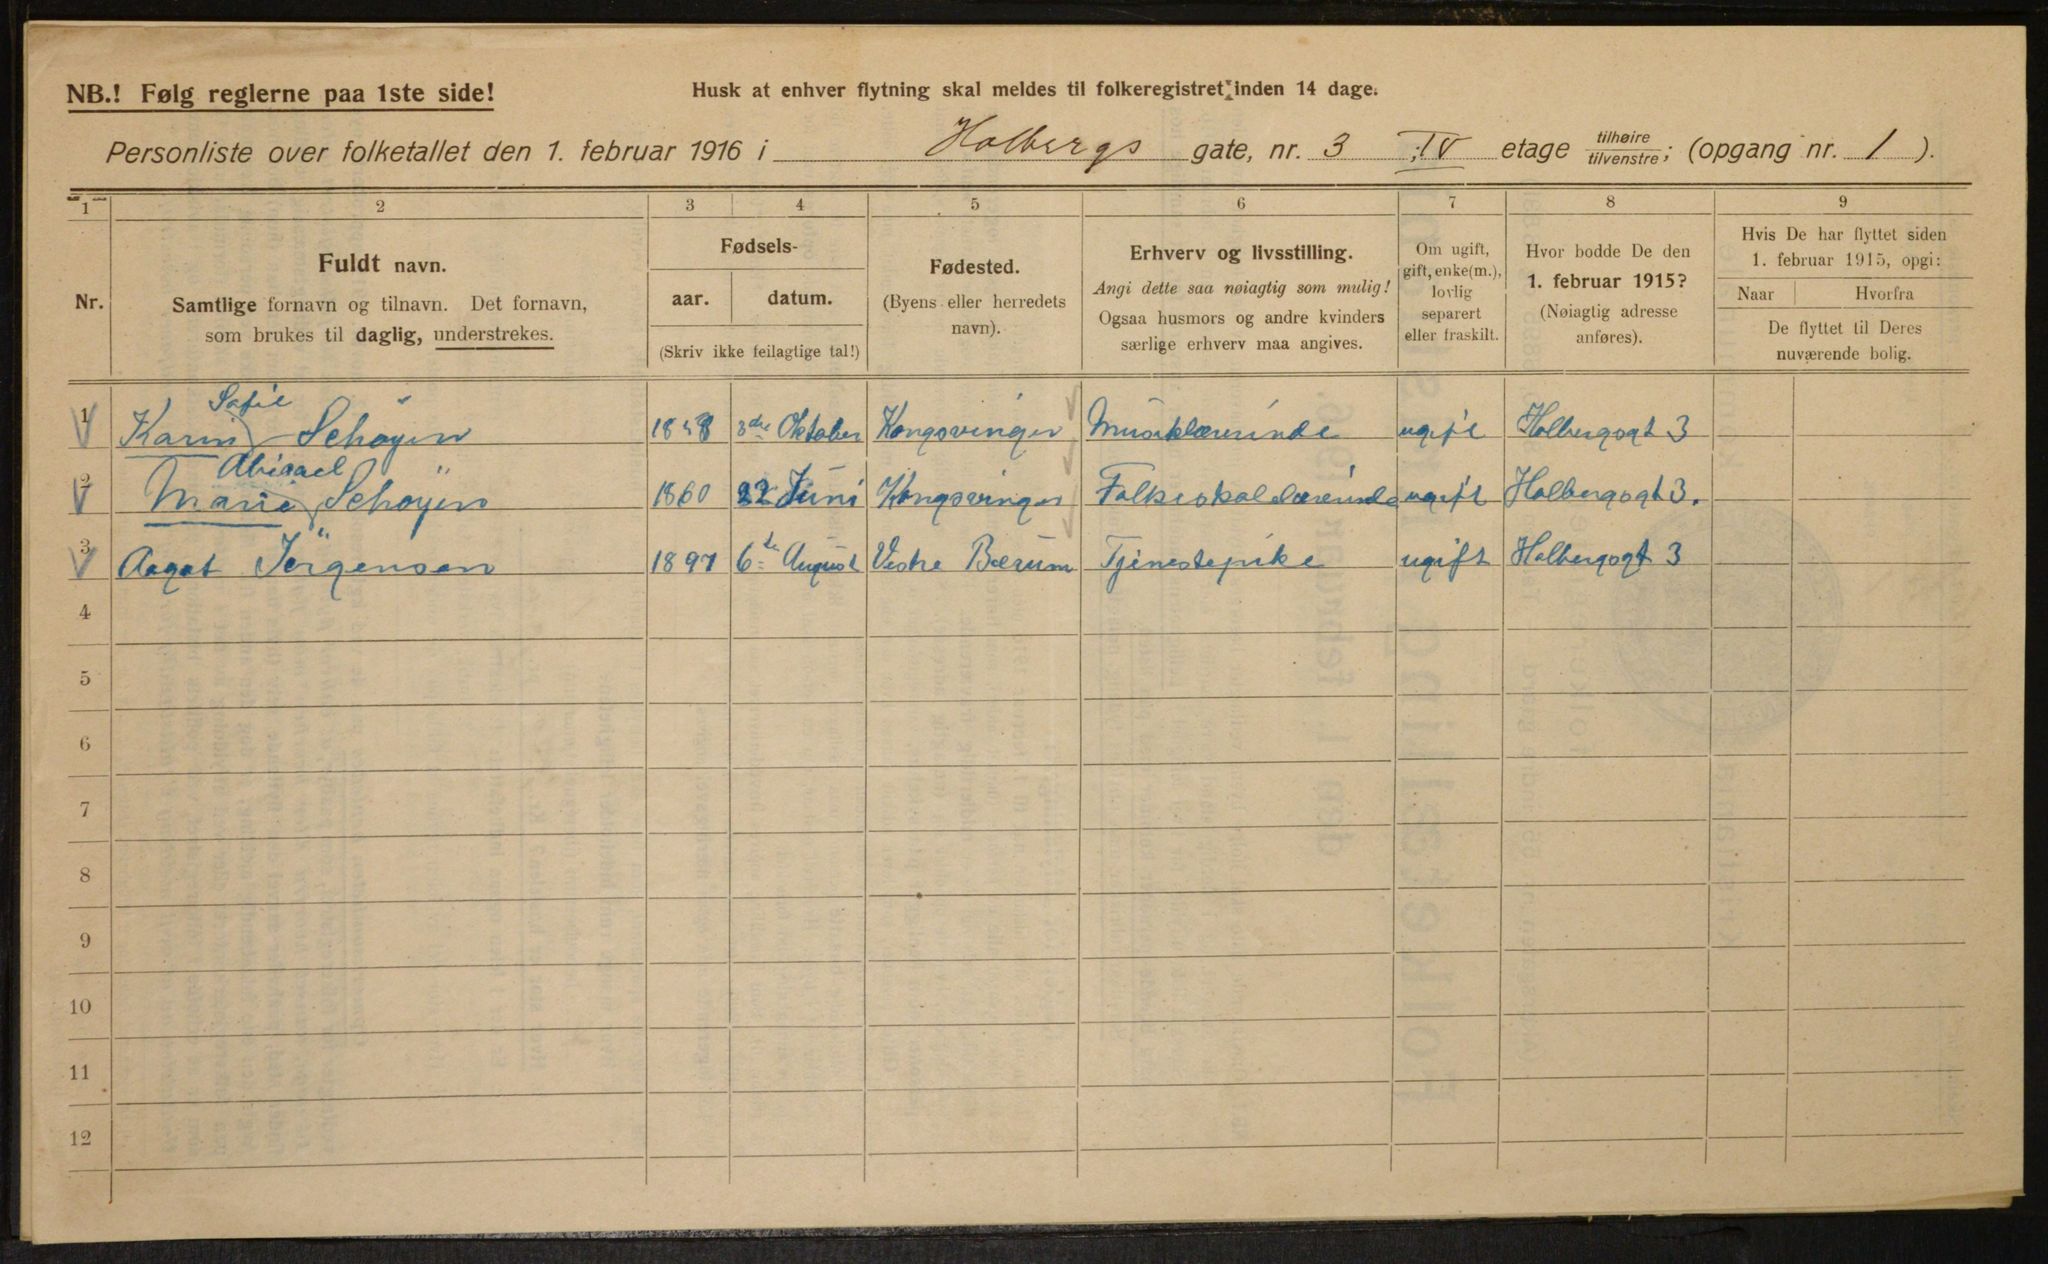 NB.! Følg reglerne paa 1ste side!
Husk at enhver flytning skal meldes til folkeregistret inden 14 dage.
Personliste over folketallet den 1. februar 1916 i Holbergs gate, nr. 3 IV etage tilhøire/tilvenstre; (opgang nr. 1).
1 2 3 4 5 6 7 8 9
Nr.
Fuldt navn.
Samtlige fornavn og tilnavn. Det fornavn,
som brukes til daglig, understrekes.
Fødsels-
aar. datum.
(Skriv ikke feilagtige tal!)
Fødested.
(Byens eller herredets
navn).
Erhverv og livsstilling.
Angi dette saa nøiagtig som mulig!
Ogsaa husmors og andre kvinders
særlige erhverv maa angives.
Om ugift,
gift, enke(m.),
lovlig
separert
eller fraskilt.
Hvor bodde De den
1. februar 1915?
(Nøiagtig adresse
anføres).
Hvis De har flyttet siden
1. februar 1915, opgi:
Naar Hvorfra
De flyttet til Deres
nuværende bolig.
Sofie
1 Karin Schøyen 3de Oktober Kongsvinger Musiklærerinde ugift Holbergsgt 3
Abigael
2 Marie Schøyen 1860 22 Juni Kongsvinger Folkeskolelærerinde ugift Holbergsgt 3.
3 Aagot Jørgensen 1897 6te August Vestre Bærum Tjenestepike ugift Holbergsgt 3
4
5
6
7
8
9
10
11
12